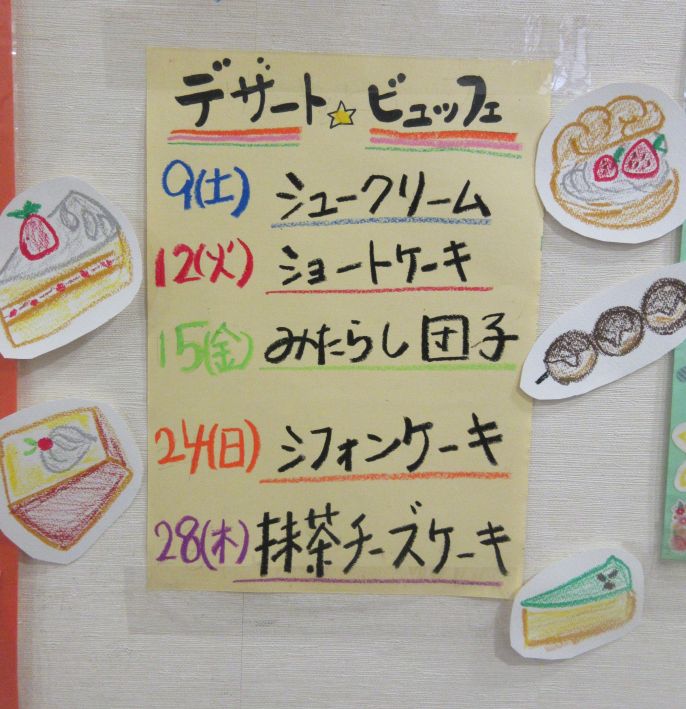 デザート☆ビュッフェ
9(土) シュークリーム
12(火) ショートケーキ
15(金) みたらし団子
24(日) シフォンケーキ
28(木) 抹茶チーズケーキ